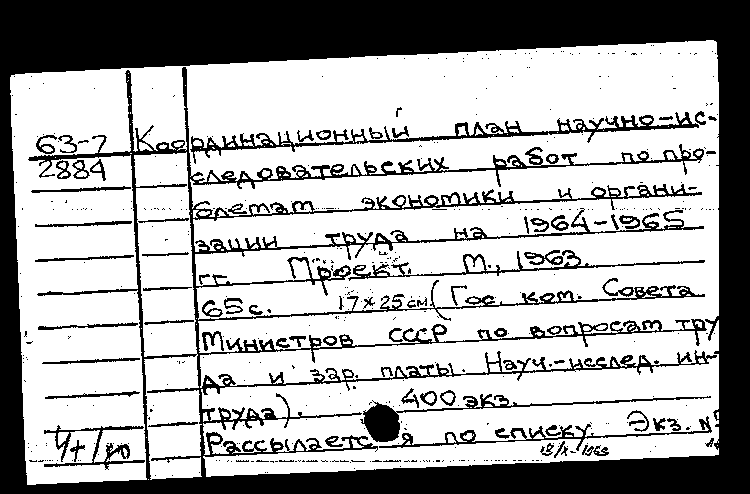 63-7 Координационный план научно-ис-
2884 следовательских работ по про-
блемам экономики и органи-
зации труда на 1964-1965
гг. Проект. М., 1963.
65 с. 17 x 25 см. (Гос. ком. Совета
Министров СССР по вопросам тру
да и зар. платы. Науч.-исслед. ин-
труда). 400 экз.
Рассылается по списку. Экз. №
1963